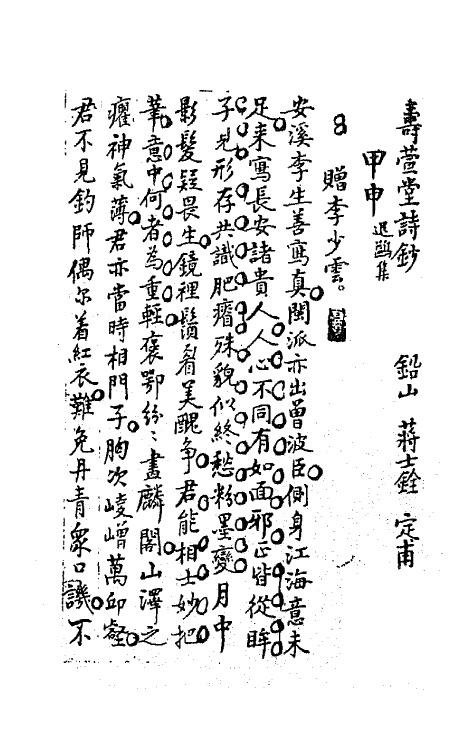 壽萱堂詩鈔　鉛山　蔣士銓　定甫
甲申
8　贈李少雲
安溪李生善寫真閩派亦出曾波臣側身江海意未
足来寫長安諸貴人人心不同有如面邪正皆從眸
子見形存共識肥瘠殊貌似終愁粉墨變月中
影髮疑畏生鏡裡鬚眉美醜争君能相士妙把
筆意中何者為重輕褒鄂紛〻畫麟閣山澤之
癯神氣薄君亦當時相門子胸次崚嶒萬邱壑
君不見釣師偶尔着紅衣難免丹青衆口譏不